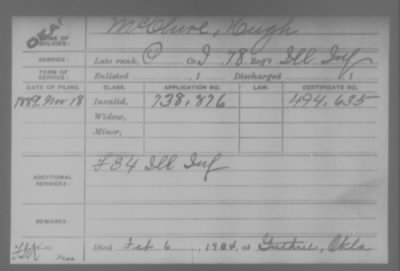 DEAD
NAME OF SOLDIER: McClure, Hugh
SERVICE: Late rank, P Co. I, 78 Reg't Ill Inf
TERM OF SERVICE: Enlisted , 1 Discharged , 1
DATE OF FILING. CLASS. APPLICATION NO. LAW. CERTIFICATE NO.
1889, Nov 18 Invalid, 738,876 494,635
Widow,
Minor,
ADDITIONAL SERVICES: F 34 Ill Inf
REMARKS:
Died Feb 6, 1904, at Guthrie, Okla